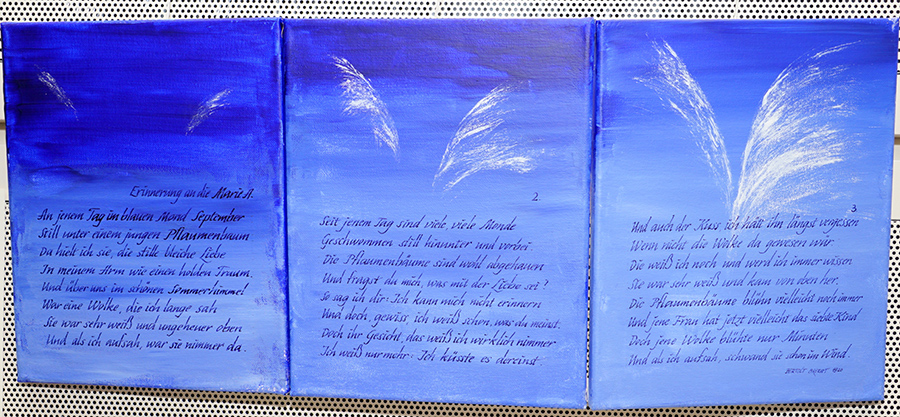 Erinnerung an die Marie A.
An jenem Tag im blauen Mond September
Still unter einem jungen Pflaumenbaum
Da hielt ich sie, die stille bleiche Liebe
In meinem Arm wie einen holden Traum.
Und über uns im schönen Sommerhimmel
War eine Wolke, die ich lange sah
Sie war sehr weiß und ungeheuer oben
Und als ich aufsah, war sie nimmer da.
2.
Seit jenem Tag sind viele, viele Monde
Geschwommen still hinunter und vorbei
Die Pflaumenbäume sind wohl abgehauen
Und fragst du mich, was mit der Liebe sei?
So sag ich dir: Ich kann mich nicht erinnern
Und doch, gewiss, ich weiß schon, was du meinst.
Doch ihr Gesicht, das weiß ich wirklich nimmer
Ich weiß nur mehr: Ich küsste es dereinst.
3.
Und auch der Kuss, ich hätt ihn längst vergessen
Wenn nicht die Wolke da gewesen wär
Die weiß ich noch und werd ich immer wissen
Sie war sehr weiß und kam von oben her.
Die Pflaumenbäume blühn vielleicht noch immer
Und jene Frau hat jetzt vielleicht das siebte Kind
Doch jene Wolke blühte nur Minuten
Und als ich aufsah, schwand sie schon im Wind.